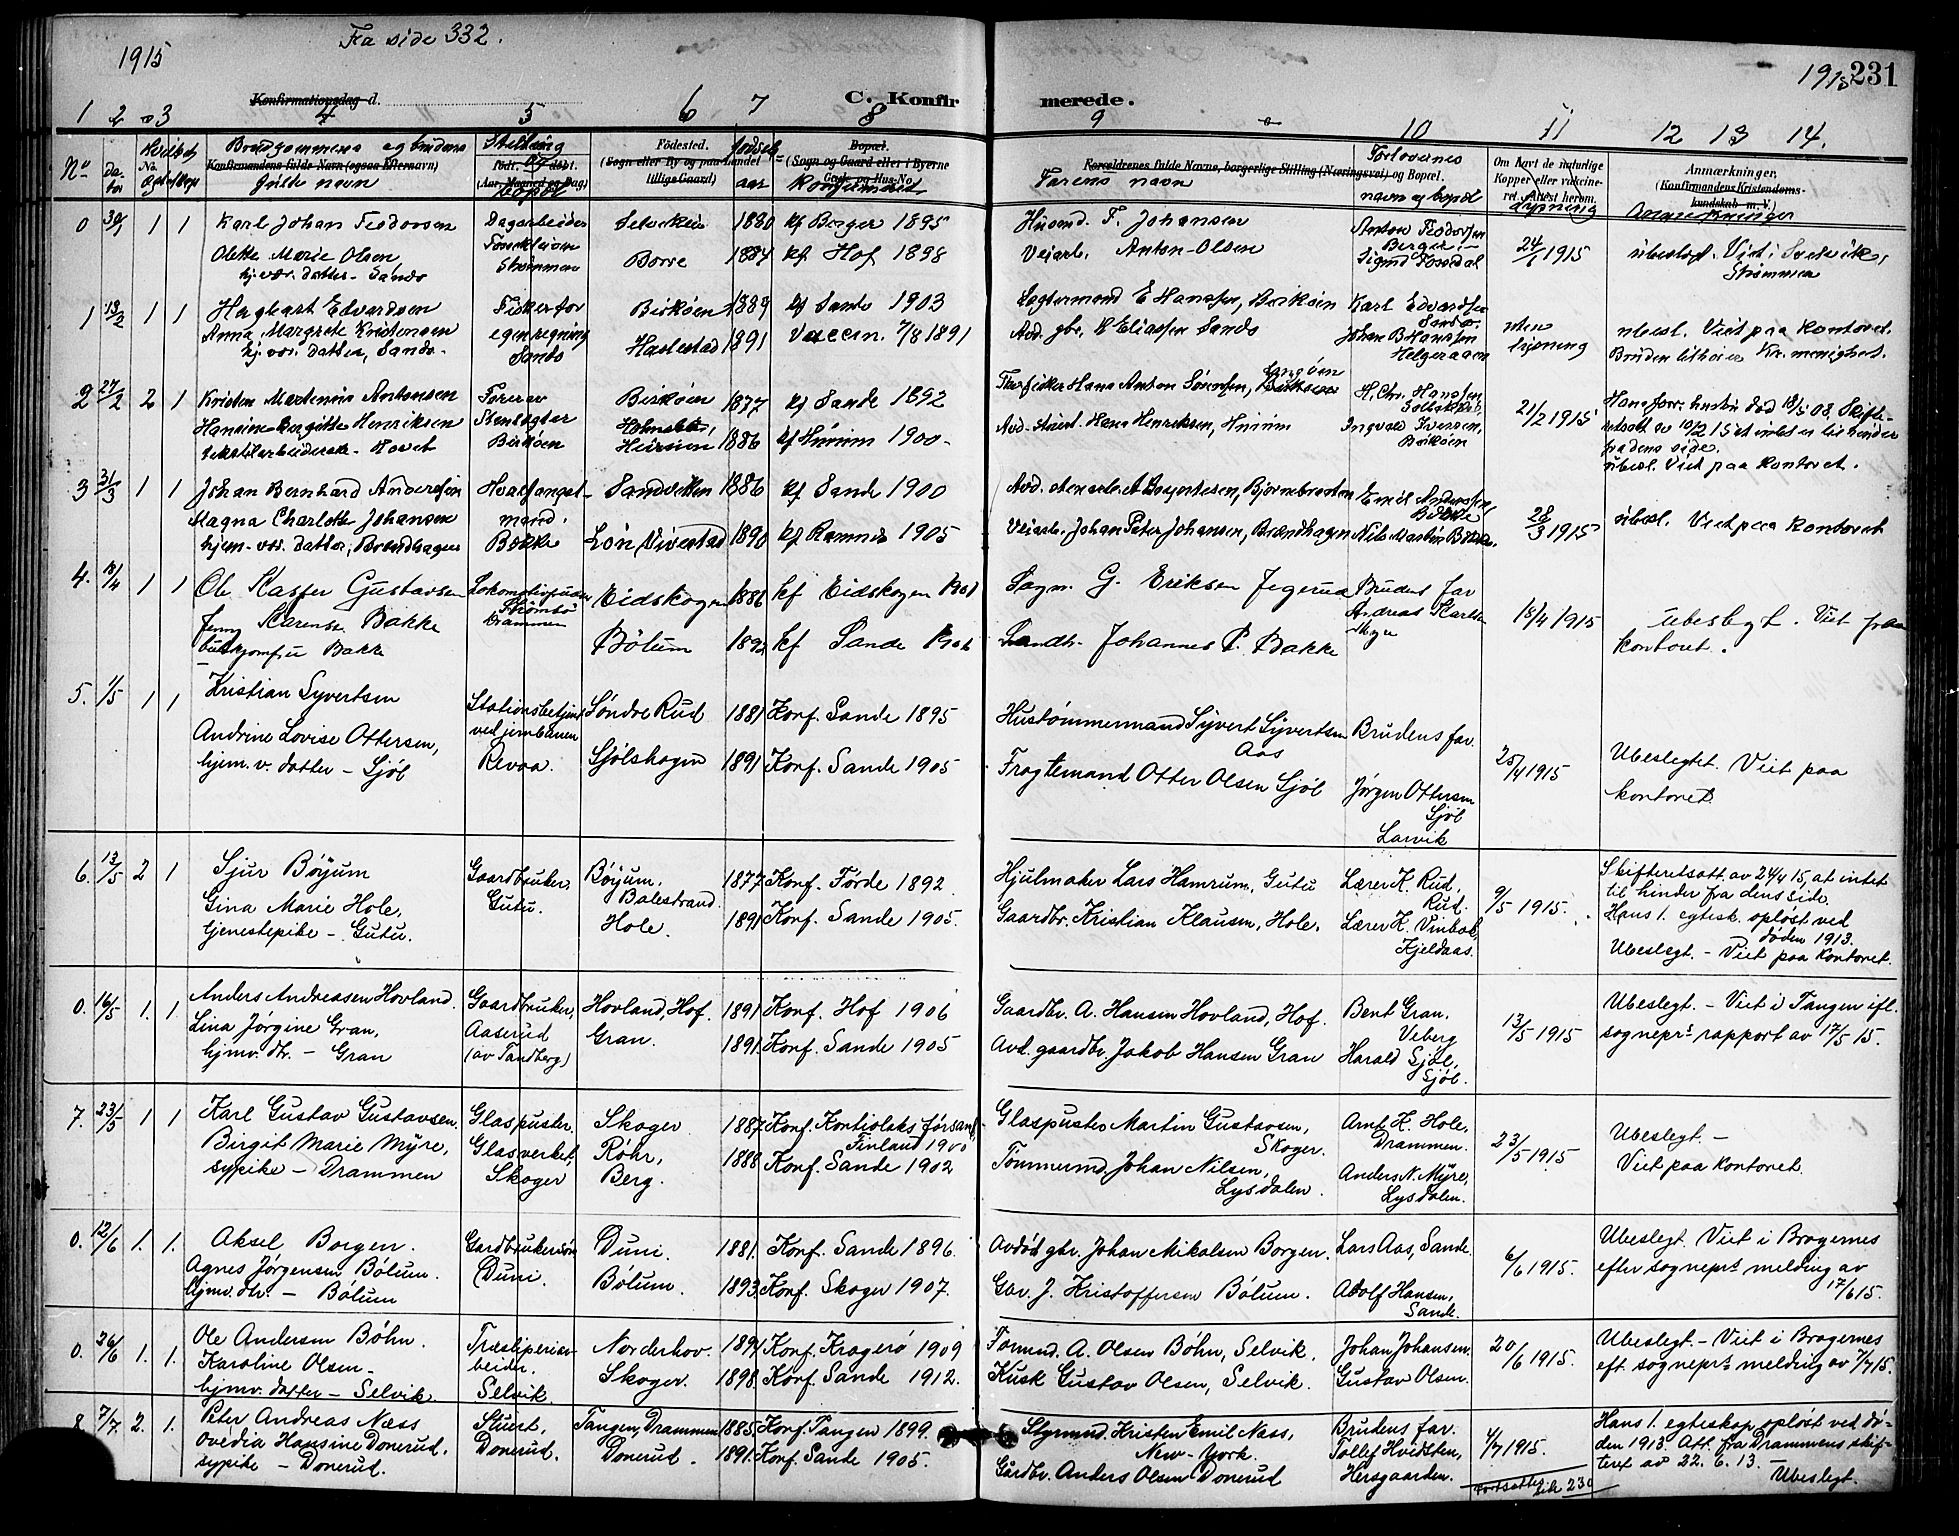 1915
Fra side 332.
1915
231
Konfirmationsdag d.
C. Konfirmerede.
1 2 3 4 5 6 7 8 9 10 11 12 13 14.
No
Brudgommens og brudens
fulde navn
Konfirmandens fulde Navn (ogsaa Efternavn)
Stilling
og
bopæl
Født, og døbt.
(Aar, Maaned og Dag)
Fødested.
(Sogn eller By og paa Landet
tillige Gaard)
fødsels-
aar
Bopæl.
(Sogn og Gaard eller i Byerne
Gade og Hus-No.)
Konfirmeret
Forældrenes fulde Navne, borgerlige Stilling (Næringsvei) og Bopæl.
Farens navn
Forlovernes
navn og bopæl
Om havt de naturlige
Kopper eller vaccine-
ret. Attest herom.
Lysning
Anmærkninger,
(Konfirmandens Kristendoms-
kundskab m. V.)
Anmerkninger
0 30/1 1 1
Karl Johan Teodorsen
Olette Marie Olsen,
hj. vær. datter - Sande
Dagarbeider
Fossekleiven
Strømmen
Selvikeie 1880 kf Berger 1895
Borre 1884 kf Hof 1898
Husmd. F. Johansen
Veiarb. Anton Olsen
Anton Teodorsen
Berger
Sigurd Fossdal
24/1 1915
ubeslegt. Viet i Svelvik,
Strømmen
1 13/2 1 1
Hagbart Edvardsen
Anna Margrete Kristensen
hj. vær. datter, Sande.
Fisker for
egen regning
Sande
Birkøen 1889 kf Sande 1903
Haslestad 1891 Vaccin. 7/8 1891
Lagtermand E Hanssen, Birkøen
Avd. gbr. K Eliassen Sande
Karl Edvardsen
Sande.
Johan B Hanssen
Helgeraaen
uten
lysning
ubesl. Viet paa kontoret.
Bruden tilhører Kr. menighet.
2 27/2 2 1
Kristen Martenius Antonsen
Hansine Bergitte Henriksen
tekstilarbeiderske - Hovet
Fører av
Stenlegter
Birkøen
Birkøen 1877 kf Sande 1892
1886 kf Hurum 1900
Fhv fisker Hans Anton Sørensen, Langøen
Avd. Hans Henriksen, Hurum
H. Chr. Hanssen,
Ingvald Iversen,
Birkøen
21/2 1915
Hans forr. hustru død 18/5 08. Skifte-
retsatt av 10/2 15 at intet er til hinder
fra dens side.
ubesl. Viet paa kontoret.
3 31/3 1 1
Johan Bernhard Anderssen
Magna Charlotte Johansen
hjem. vær. datter, Brændhagen
Hvalfangst-
mand.
Bakke
Sandvikken 1886 kf Sande 1900
Løn, Vivestad 1890 kf Ramnes 1905
Veiarb. Johan Peter Johansen, Brændhagen
Emil Anderssen
Bakke
Nils Martin Bakke.
28/3 1915
ubesl. Viet paa kontoret
4. 18/4 1 1
Ole Kasper Gustavsen
Jenny Karense Bakke
butikjomfru Bakke
Lokomotivpudser
Strømsø
Drammen
Eidskogen 1886 kf Eidskogen 1901
Bølum kf Sande
Sagm. G. Eriksen Jegerud
Landh. Johannes P. Bakke
Brudens far
Andreas Karlsen
18/4 1915
ubeslegt. Viet paa
kontoret.
5. 1/5 1 1
Kristian Syvertsen
Andrine Lovise Ottersen,
hjem. v. datter - Sjøl
Stationsbetjent
ved jernbanen
Revaa.
Søndre Rud 1881 Konf. Sande 1895
Sjølshagen 1891 Konf. Sande 1905
Hustømmermand Syvert Syvertsen
Aas
Fragtemand Otter Olsen Sjøl
Brudens far.
Jørgen Ottersen
Sjøl
Larvik
25/4 1915
Ubeslegtet. Viet paa
kontoret.
6. 13/5 2 1
Sjur Bøyum
Gina Marie Hole,
tjenestepike - Gutu.
Gaardbruker,
Gutu.
Bøyum,
Balestrand 1877 Konf. Førde 1892
Hole. 1891 Konf. Sande 1905.
Hjulmaker Lars Hamrum, Gutu
Gaardbr. Kristian Klausen, Hole.
Lærer K. Rud,
Rud.
Lærer K. Vinbok,
Kjeldaas.
9/5 1915.
Skifteretsatt av 24/4 15, at intet
til hinder fra dens side.
Hans 1. egtesk. opløst ved
døden 1913.
Ubeslegt. - Viet paa kontoret.
0. 16/5 1. 1
Anders Andreasen Hovland.
Lina Jørgine Gran,
hjmv. dtr. - Gran
Gaardbruker,
Aaserud
(av Tandberg)
Hovland, Hof. 1891 Konf. Hof 1906
Gran. 1891 Konf. Sande 1905
Gaardbr. A. Hansen Hovland, Hof.
Avd. gaardbr. Jakob Hansen Gran
Bent Gran,
Veberg
Harald Sjøl,
Sjøl.
13/5 1915
Ubeslegt. - Viet i Tangen ifl.
sognepr.s rapport av 17/5 15.
7. 23/5 1 1
Karl Gustav Gustavsen.
Birgit Marie Myre,
sypike - Drammen
Glaspuster,
Glasverket,
Skoger
Skoger 1887 Konf. Kontiolaks førsaml.
Finland 1900
Røhr,
Berg. 1888 Konf. Sande 1902
Glaspuster Martin Gustavsen,
Skoger.
Tømmermd. Johan Nilsen,
Lysdalen.
Arnt K. Hole,
Drammen.
Anders N. Myre,
Lysdalen.
23/5 1915
Ubeslegt. -
Viet paa kontoret.
0. 12/6 1. 1.
Aksel Borgen.
Agnes Jørgensen Bølum.
hjmv. dtr. - Bølum
Gardbrukersøn
Duni.
Duni. 1881. Konf. Sande 1896.
Bølum. 1893 Konf. Skoger 1907.
Avdød gbr. Johan Mikalsen Borgen.
Gbr. J. Kristoffersen Bølum.
Lars Aas, Sande.
Adolf Hansen,
Sande.
6/6 1915.
Ubeslegt. Viet i Bragernes
efter sognepr.s melding av
17/6 15.
0. 26/6 1. 1.
Ole Andersen Bøhn.
Karoline Olsen -
hjmv. datter - Selvik
Træsliperiar-
beider.
Selvik.
Norderhov. 1894 Konf. Kragerø 1909
Skoger. 1898 Konf. Sande 1912.
Tømmd. A. Olsen Bøhn, Selvik.
Kusk Gustav Olsen, Selvik.
Johan Johansen.
Gustav Olsen.
20/6 1915.
Ubeslegt. - Viet i Bragernes
eft. sognepr.s melding av 7/7 15.
8. 7/7. 2. 1.
Peter Andreas Næss
Ovedia Hansine Donerud,
sypike - Donerud.
Stuert,
Donerud.
Tangen, Drammen 1885 Konf. Tangen 1899.
Donerud. 1891. Konf. Sande 1905.
Styrmnd. Kristen Emil Næss,
New-York.
Gårdbr. Anders Olsen Donerud
Brudens far.
Tollef Hvidsten,
Hersgaarden.
4/7 1915.
Hans 1. egteskap opløst ved dø-
den 1913. Att. fra Drammens skif-
teret av 22. 6. 13. -
Ubeslegt.
Fortsættes
side 230